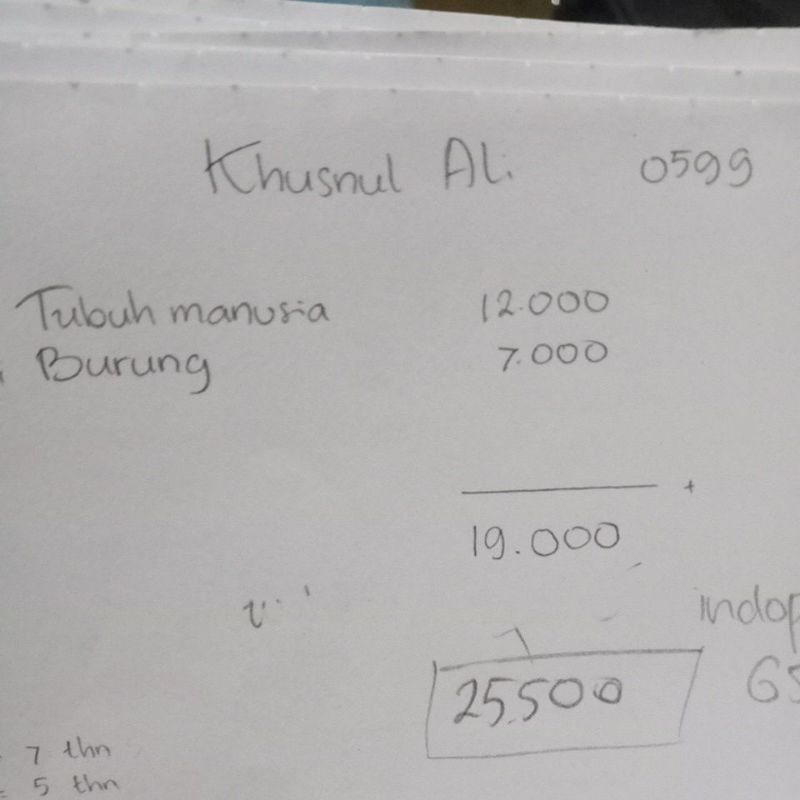 Khusnul Al. 0599
Tubuh manusia 12.000
Burung 7.000
+
19.000
25.500
7 thn
= 5 thn